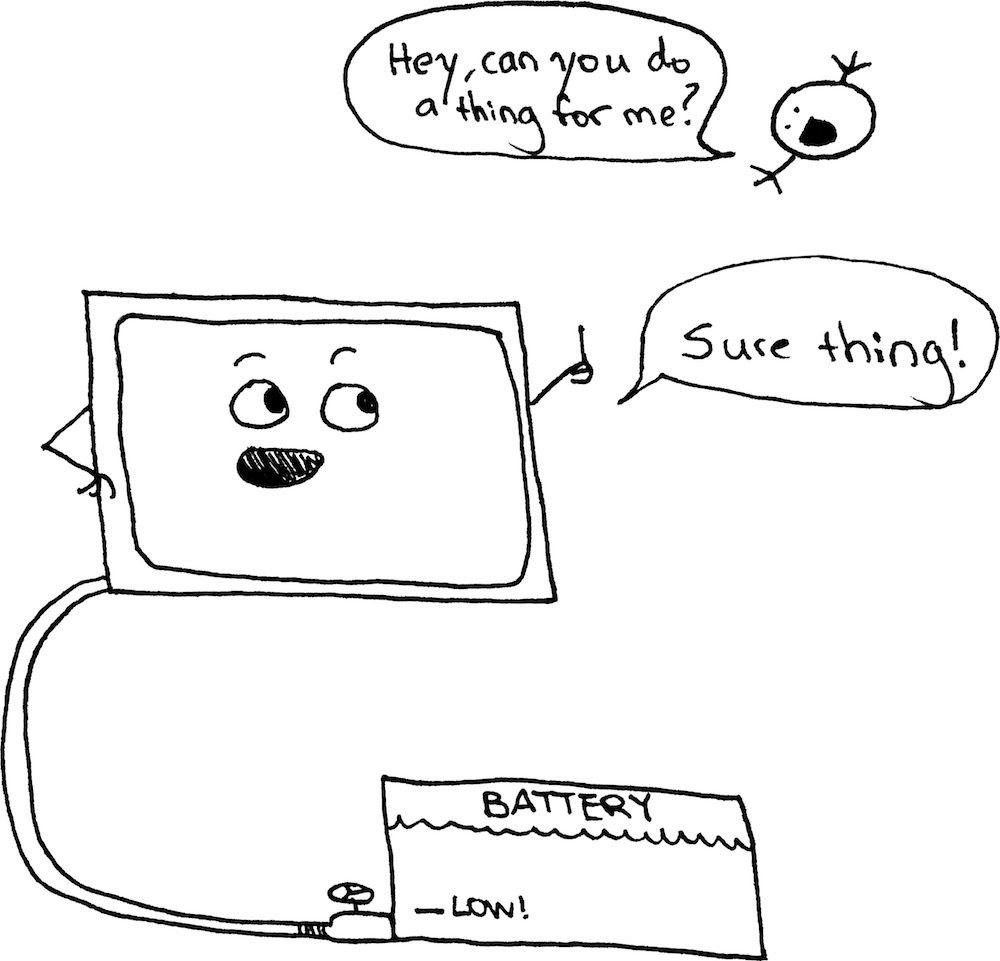 Hey, can you do
a thing for me?
Sure thing!
BATTERY
– LOW!